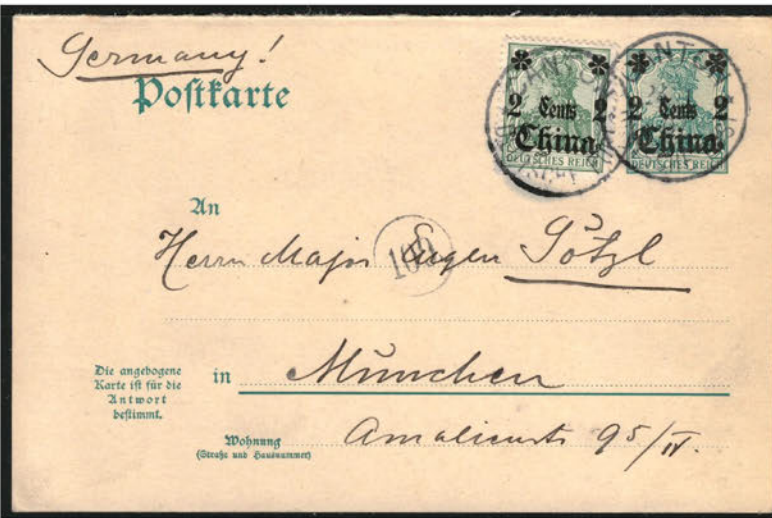 Germany!
Postkarte
2 Cents 2
China
DEUTSCHES REICH
2 Cents 2
China
DEUTSCHES REICH
CANTON
CANTON
An
Herrn Major Eugen Götzl
106
Die angebogene
Karte ist für die
Antwort
bestimmt.
in München
Wohnung
(Straße und Hausnummer)
Amalienstr 95/IV.